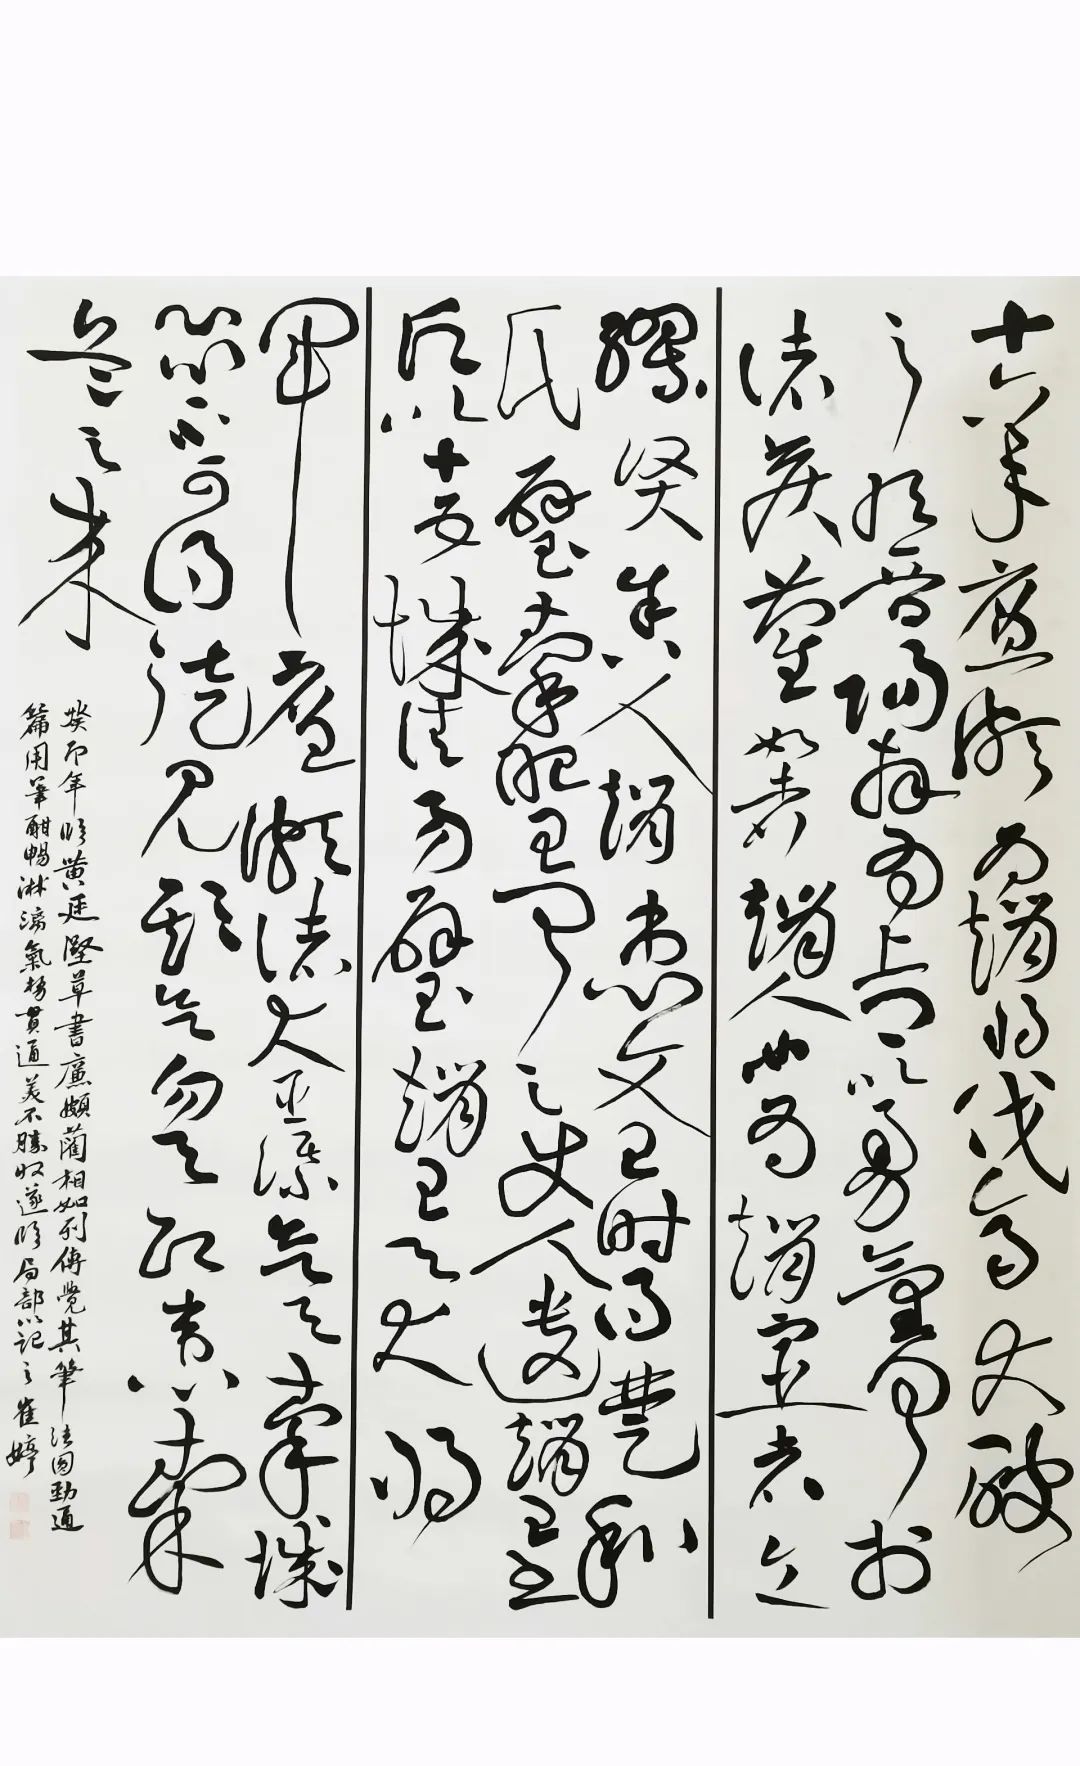 十六年廉頗為趙將伐齊大破
之取晉陽拜為上卿以勇氣聞於
諸侯藺相如者趙人也為趙宦者令
繆賢舍人趙惠文王時得楚和
氏璧秦昭王聞之使人遺趙王
書以十五城請易璧趙王與大將
軍廉頗諸大臣謀欲予秦秦城
恐不可得徒見欺欲勿予即患秦
兵之來
癸卯年臨黃庭堅草書廉頗藺相如列傳覺其筆法圓勁通
篇用筆酣暢淋漓氣格貫通美不勝收遂臨局部以記之崔婷